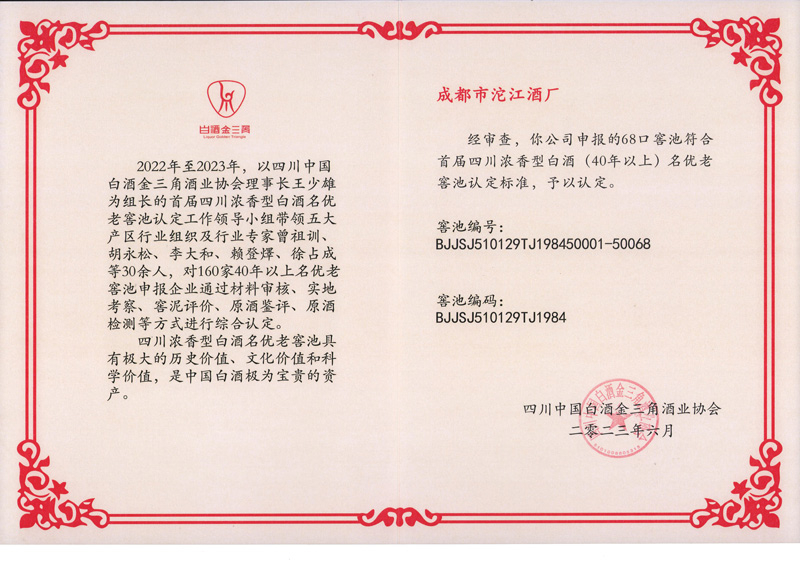 白酒金三角
Liquor Golden Triangle
2022年至2023年，以四川中国
白酒金三角酒业协会理事长王少雄
为组长的首届四川浓香型白酒名优
老窖池认定工作领导小组带领五大
产区行业组织及行业专家曾祖训、
胡永松、李大和、赖登燡、徐占成
等30余人，对160家40年以上名优老
窖池申报企业通过材料审核、实地
考察、窖泥评价、原酒鉴评、原酒
检测等方式进行综合认定。
四川浓香型白酒名优老窖池具
有极大的历史价值、文化价值和科
学价值，是中国白酒极为宝贵的资
产。
成都市沱江酒厂
经审查，你公司申报的68口窖池符合
首届四川浓香型白酒（40年以上）名优老
窖池认定标准，予以认定。
窖池编号：
BJJSJ510129TJ198450001-50068
窖池编码：
BJJSJ510129TJ1984
四川中国白酒金三角酒业协会
二零二三年六月